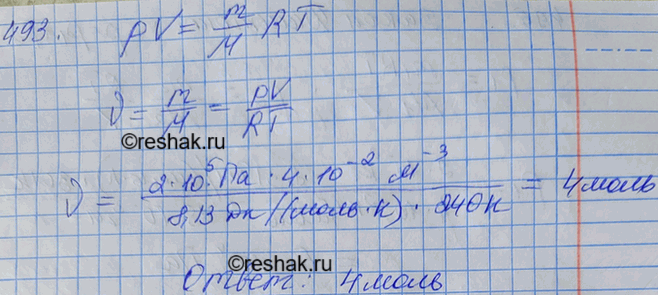 493. pV = m/M RT
ν = m/M = pV/RT
©reshak.ru
ν = 2·10⁵ Па · 4·10⁻² м⁻³ / 8,13 Дж/(моль·К) · 240К = 4 моль
©reshak.ru
Ответ: 4 моль